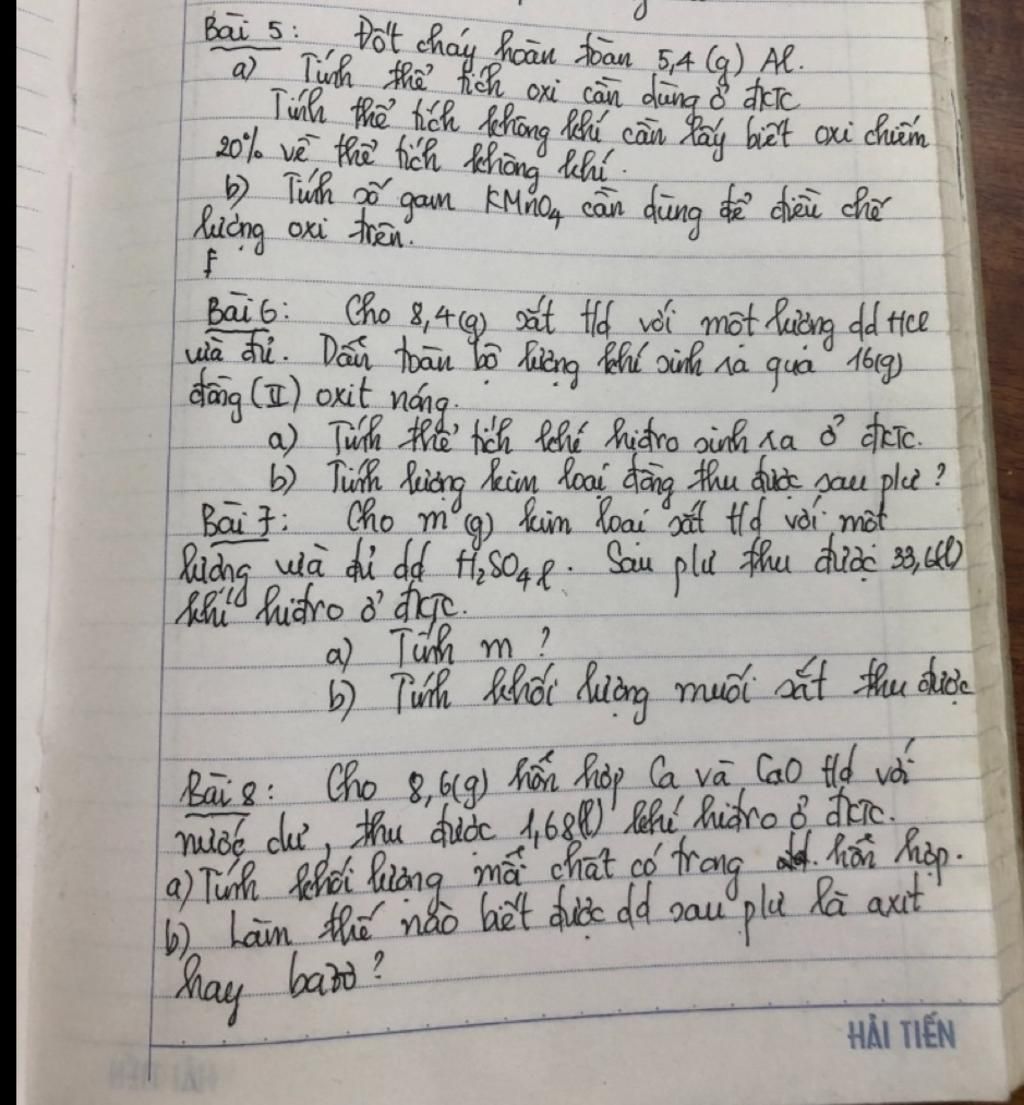 Bài 5: Đốt cháy hoàn toàn 5,4 (g) Al.
a) Tính thể tích oxi cần dùng ở đktc
Tính thể tích không khí cần lấy biết oxi chiếm
20% về thể tích không khí.
b) Tính số gam KMnO4 cần dùng để điều chế
lượng oxi trên.
Bài 6: Cho 8,4(g) sắt t/d với một lượng dd HCl
vừa đủ. Dẫn toàn bộ lượng khí sinh ra qua 16(g)
đồng (II) oxit nóng.
a) Tính thể tích khí hiđro sinh ra ở đktc.
b) Tính lượng kim loại đồng thu được sau pư?
Bài 7: Cho m (g) kim loại sắt t/d với một
lượng vừa đủ dd H2SO4 l. Sau pư thu được 33,6(l)
khí hiđro ở đktc.
a) Tính m?
b) Tính khối lượng muối sắt thu được
Bài 8: Cho 8,6(g) hỗn hợp Ca và CaO t/d với
nước dư, thu được 1,68(l) khí hiđro ở đktc.
a) Tính khối lượng mỗi chất có trong hỗn hợp.
b) Làm thế nào biết được dd sau pư là axit
hay bazơ?
HẢI TIẾN